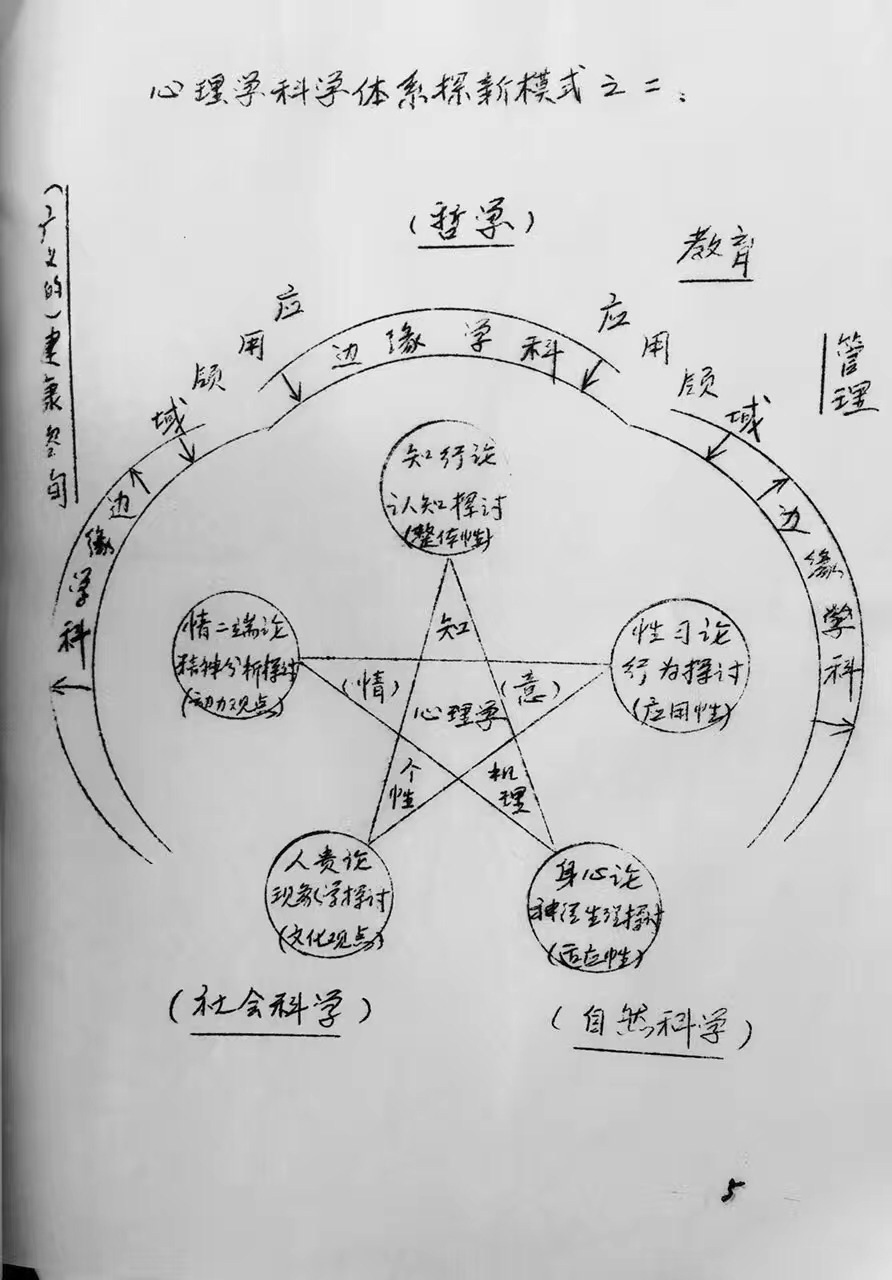 心理学科学体系探新模式之二:
(哲学)
教育
管理
(广义的)健康咨询
应用领域
应用领域
边缘学科
边缘学科
边缘学科
知行论
认知探讨
(整体性)
情二端论
精神分析探讨
(动力观点)
性习论
行为探讨
(应用性)
知
(情)
(意)
心理学
个性
机理
人贵论
现象学探讨
(文化观点)
身心论
神经生理探讨
(适应性)
(社会科学)
(自然科学)
5